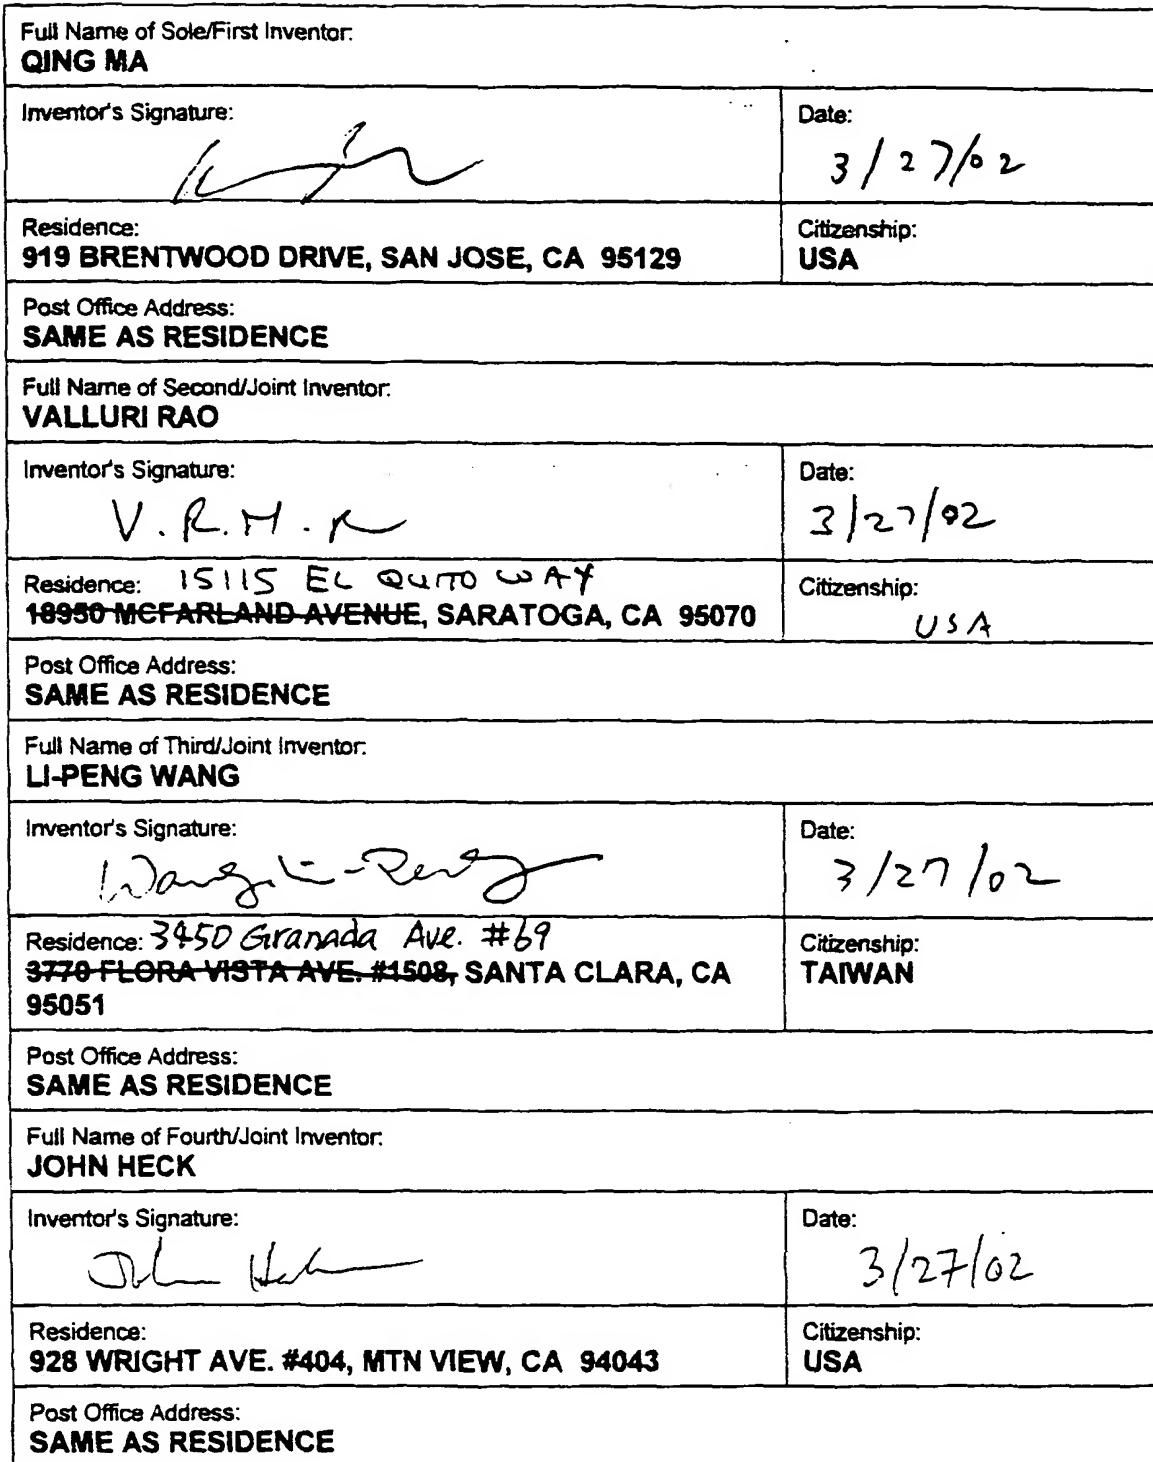 Full Name of Sole/First Inventor:
QING MA
Inventor's Signature:
Date:
3/27/02
Residence:
919 BRENTWOOD DRIVE, SAN JOSE, CA 95129
Citizenship:
USA
Post Office Address:
SAME AS RESIDENCE
Full Name of Second/Joint Inventor:
VALLURI RAO
Inventor's Signature:
V. R. M. R
Date:
3/27/02
Residence: 15115 EL QUITO WAY
18950 MCFARLAND AVENUE, SARATOGA, CA 95070
Citizenship:
USA
Post Office Address:
SAME AS RESIDENCE
Full Name of Third/Joint Inventor:
LI-PENG WANG
Inventor's Signature:
Wang, Li-Peng
Date:
3/27/02
Residence: 3450 Granada Ave. #69
3770 FLORA VISTA AVE. #1508, SANTA CLARA, CA
95051
Citizenship:
TAIWAN
Post Office Address:
SAME AS RESIDENCE
Full Name of Fourth/Joint Inventor:
JOHN HECK
Inventor's Signature:
John Heck
Date:
3/27/02
Residence:
928 WRIGHT AVE. #404, MTN VIEW, CA 94043
Citizenship:
USA
Post Office Address:
SAME AS RESIDENCE